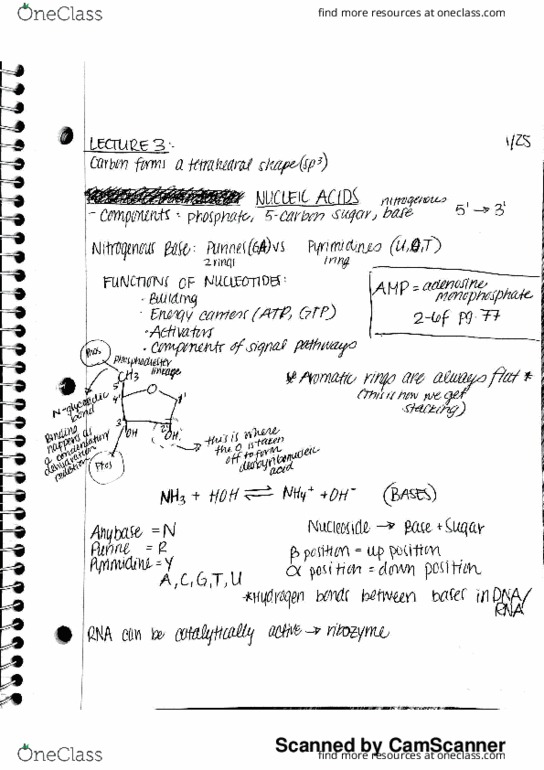 OneClass
find more resources at oneclass.com
LECTURE 3:
1/25
Carbon forms a tetrahedral shape (sp3)
NUCLEIC ACIDS
- Components: phosphate, 5-carbon sugar, nitrogenous base
5' → 3'
Nitrogenous Base: Purines (GA) vs Pyrimidines (U,C,T)
2 rings
1 ring
FUNCTIONS OF NUCLEOTIDES:
· Building
· Energy carriers (ATP, GTP)
· Activators
· Components of signal pathways
AMP = adenosine
monophosphate
2-6f pg. 77
* Aromatic rings are always flat *
(this is how we get
stacking)
Phos
Phosphodiester
linkage
CH3
5'
O
4'
1'
3'
2'
OH
OH
N-glycosidic
bond
Binding
happens as
a condensation/
dehydration
reaction
Phos
this is where
the O is taken
off to form
deoxyribonucleic
acid
NH3 + HOH ⇌ NH4+ + OH- (BASES)
Any base = N
Purine = R
Pyrimidine = Y
A, C, G, T, U
Nucleoside → Base + Sugar
β position = up position
α position = down position
*Hydrogen bonds between bases in DNA/
RNA
RNA can be catalytically active → ribozyme
Scanned by CamScanner
OneClass
find more resources at oneclass.com